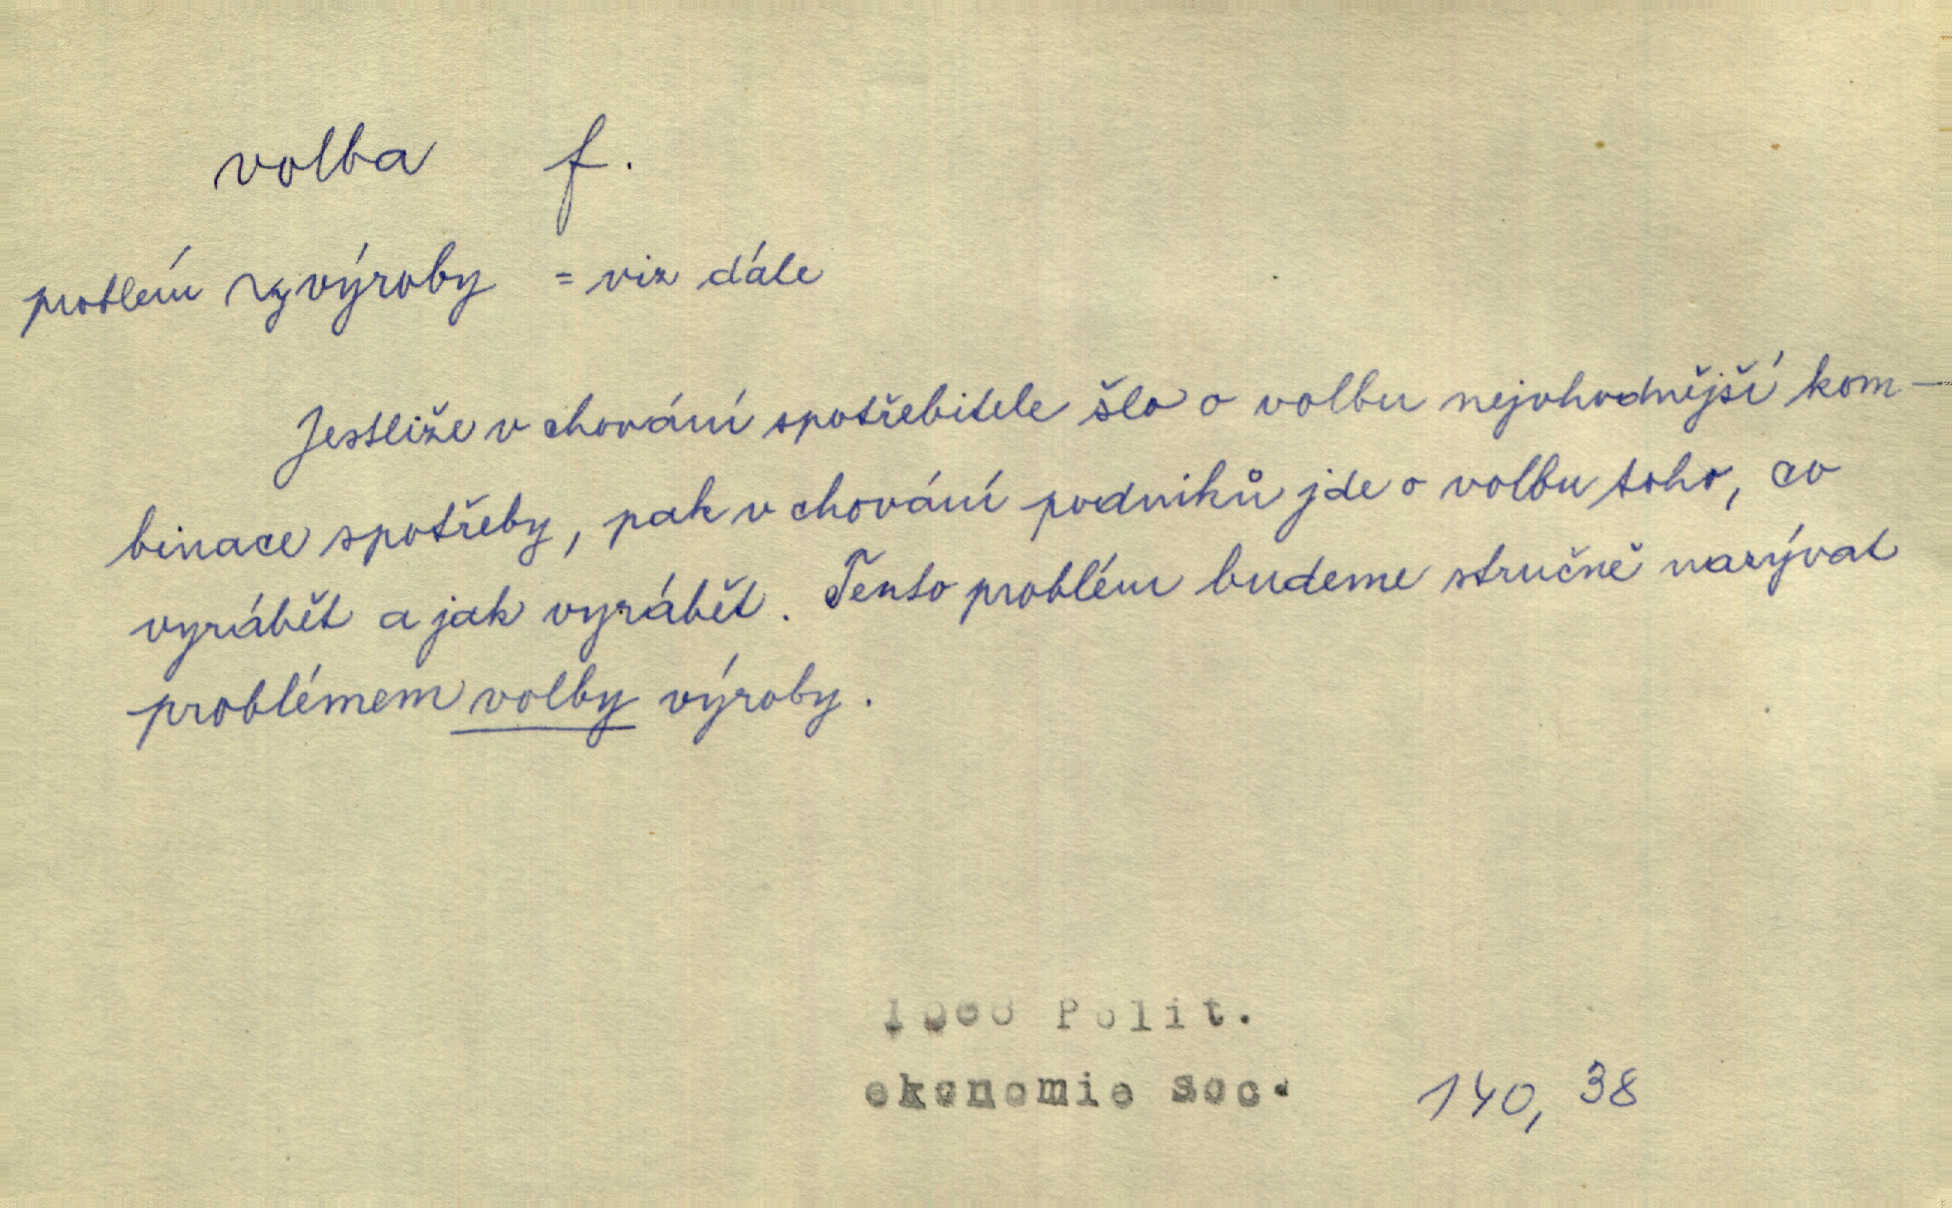 volba f.
problém ~y výroby = viz dále
Jestliže v chování spotřebitele šlo o volbu nejvhodnější kom-
binace spotřeby, pak v chování podniků jde o volbu toho, co
vyrábět a jak vyrábět. Tento problém budeme stručně nazývat
problémem volby výroby.
Polit.
ekonomie soc.
140, 38